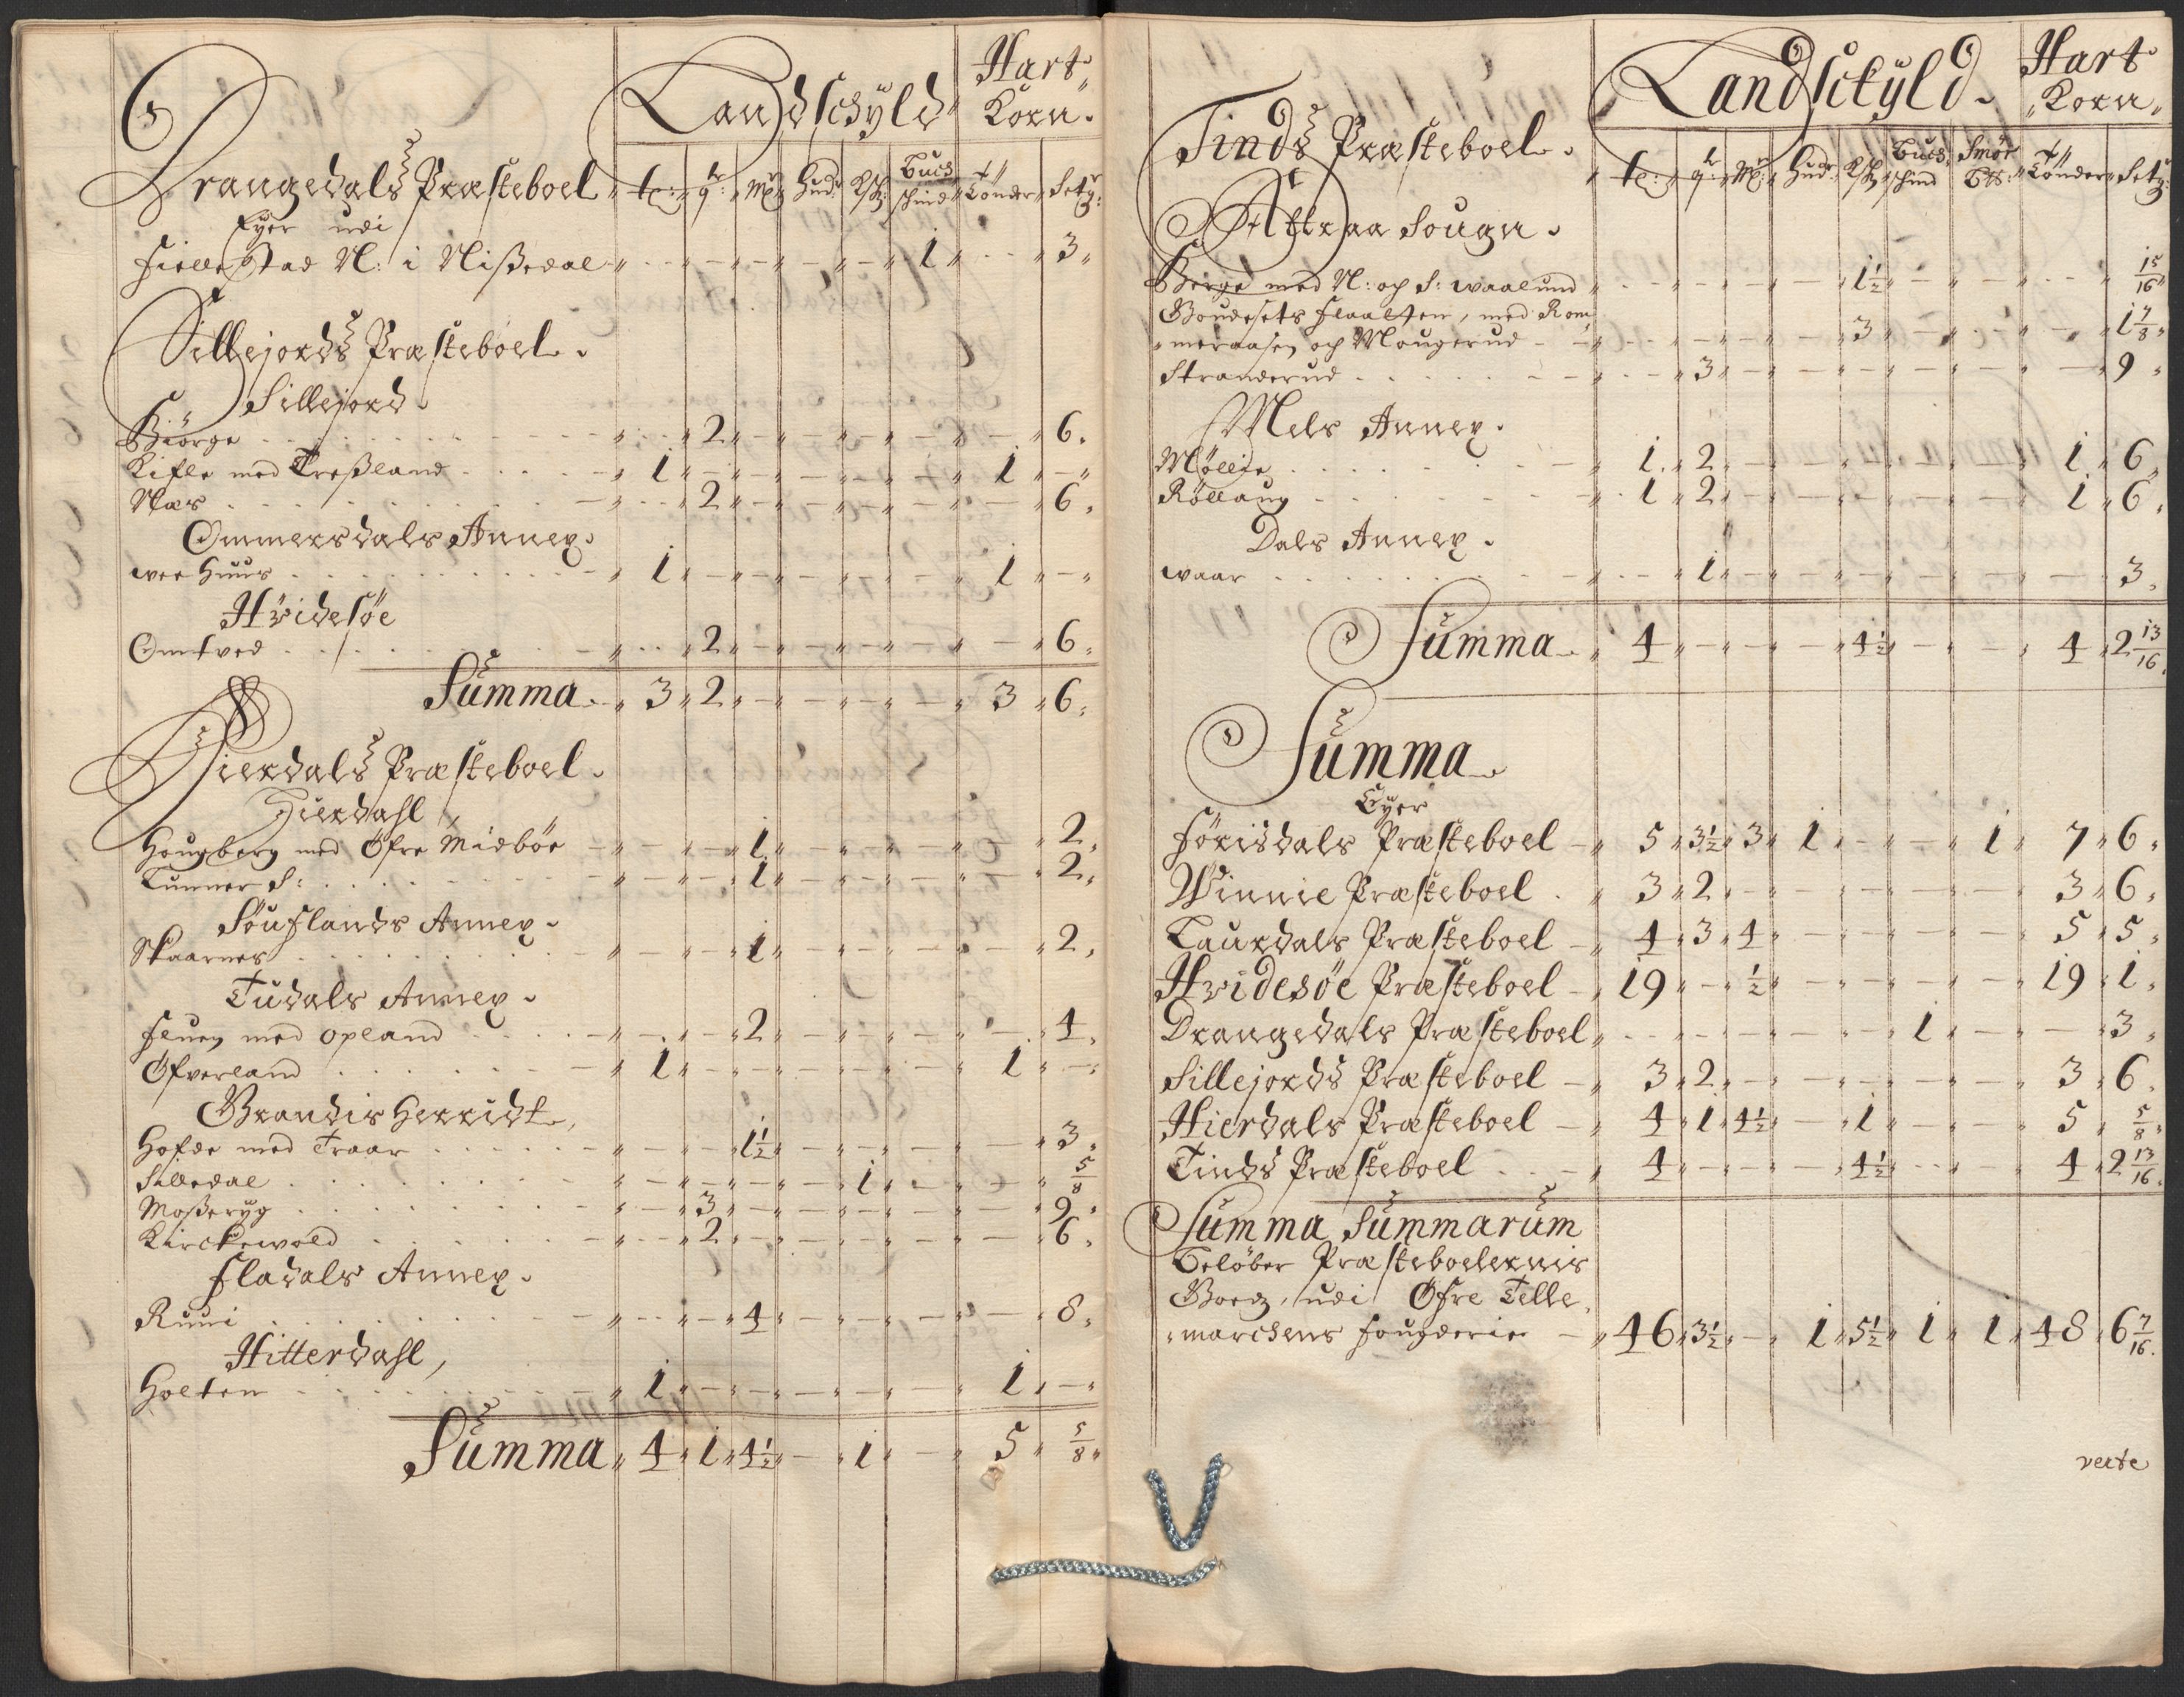 Landschyld Hart Korn.
Drangedals Præsteboel tr: qr: Mel: Hud: Buch schind Tönder Setg:
Eyer udi
Fiellestad N: i Nissedal 1 3
Sillejords Præsteboel.
Sillejord
Biörge 2 6.
Kifle med Tressland 1 1
Næs 2 6.
Ommersdals Annex.
wee Huus 1 1
Hvidesöe
Omtved 2 6.
Summa. 3 2 3 6.
Hierdals Præsteboel.
Hierdahl
Hougberg med Öfre Midböe 1 2.
Tunner S: 1 2.
Söuflands Annex.
Skaarnes 1 2.
Tudals Annex.
Fluey med Opland 2 4.
Öfverland 1 1
Brandis Herridt,
Hofde med Traar 1½ 3.
Silledal 1 5/8
Mosseryg 3 9.
Kirckewold 2 6.
Fladals Annex.
Ruui 4 8.
Hitterdahl,
Holten 1 1
Summa 4 1 4½ 1 5 5/8
Landschyld. Hart Korn
Tinds Præsteboel. tr: qr: Mel: Hud: Buch schind Smör Tönder Setg:
Attraa Sougn.
Berge med N: og S: waalund 1½ 15/16
Goudesets Flaatten, med Rom
meraasen og Mougerud 3 1 7/8
Stranderud 3 9
Mels Annex.
Møllie 1 2 1 6
Røllaug 1 2 1 6.
Dals Annex.
waar 1 3.
Summa 4 4½ 4 2 13/16
Summa
Eyer
Förisdals Præsteboel 5 3½ 3 1 1 7 6.
Winnie Præsteboel 3 2 3 6.
Laurdals Præsteboel 4 3 4 5 5.
Hvidesöe Præsteboel 19 ½ 19 1.
Drangedals Præsteboel 1 3.
Sillejords Præsteboel 3 2 3 6.
Hierdals Præsteboel 4 1 4½ 1 5 5/8
Tinds Præsteboel 4 4½ 4 2 13/16
Summa Summarum
Belöber Præsteboelernis
Goedz, udi Öfre Telle
marchens Fougderie 46 3½ 1 5½ 1 1 48 6 7/16.
verte